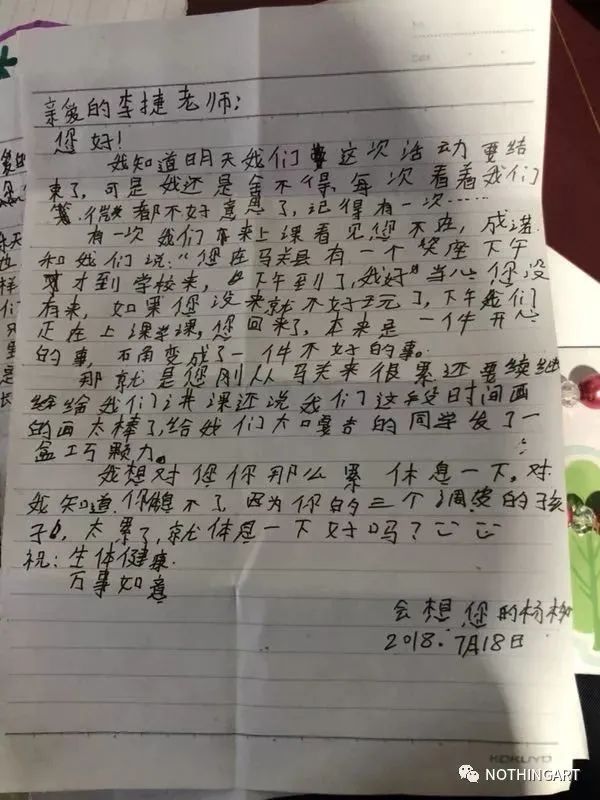 亲爱的李捷老师:
您好!
我知道明天我们这次活动要结
束了,可是我还是舍不得,每次看着我们
微都不好意思了,记得有一次……
有一次我们来上课看见您不在,成诺
和我们说:"您在马关县有一个笑座下午
才到学校来,下午到了,我好"当心"您没
有来,如果您没来就不好玩了,下午我们
正在上课,您回来了,本来是一件开心
的事,而变成了一件不好的事。
那就是您刚从马关来很累还要续
给我们讲课还说我们这段时间画
的画太棒了,给我们的同学发了一
盒巧颗力。
我想对您你那么累休息一下,对
我知道,你不了,因为你的三个调皮的孩
子,太累了,就体息一下好吗?
祝:生体健康.
万事如意
会想您的杨
2018.7月18日
KOKUYO
NOTHINGART